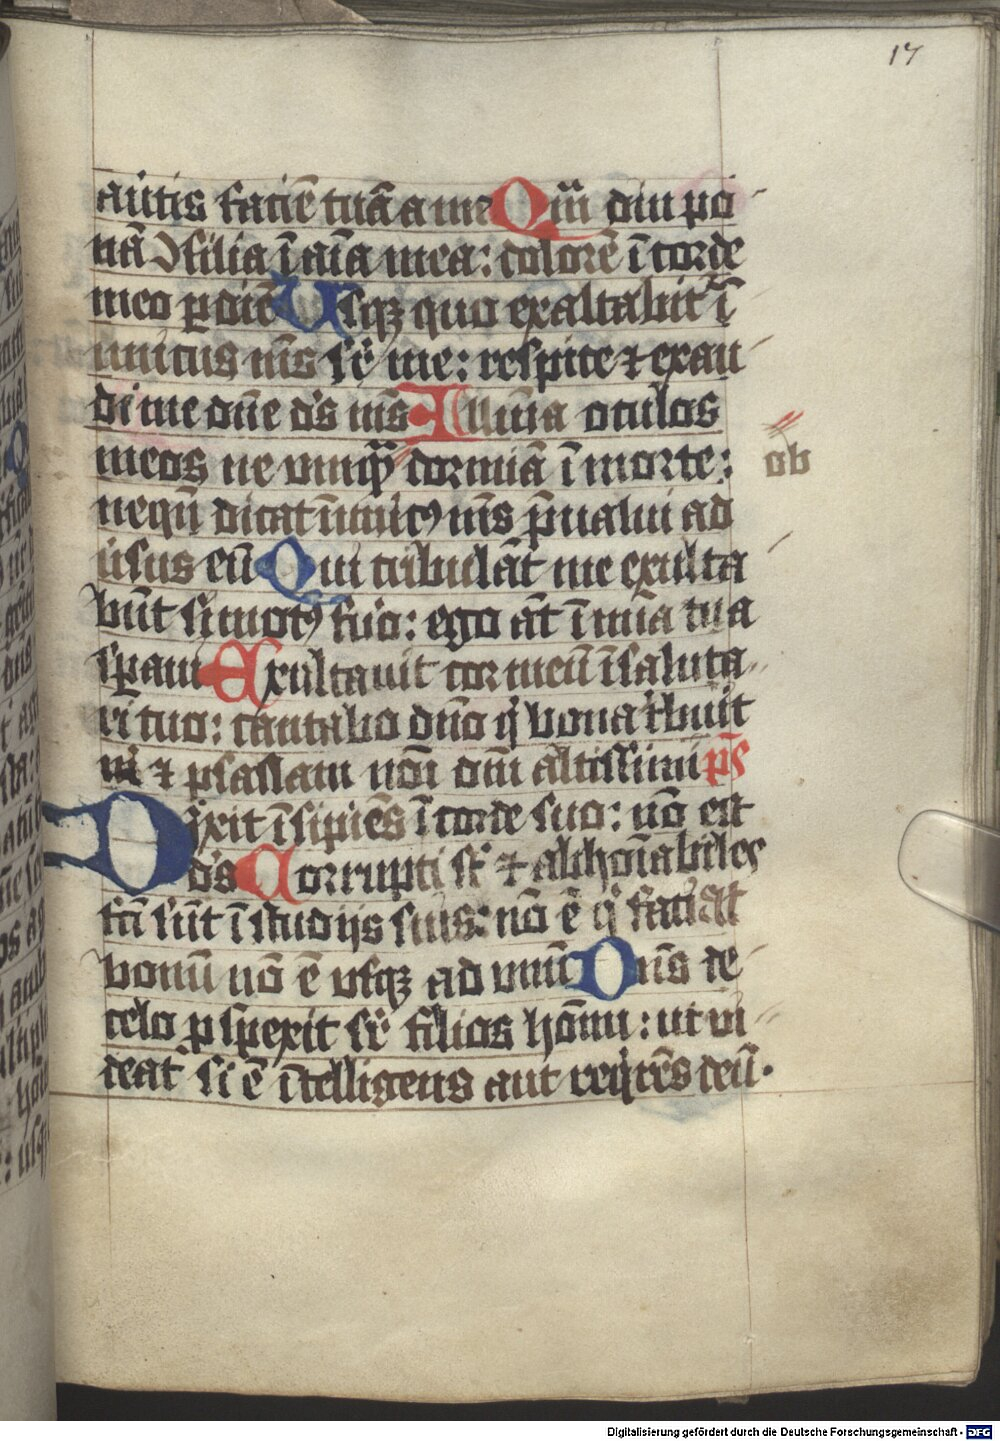 17
auertis faciē tuā a me Qm̄ diu po
nā ↄsilia ī aīa mea: dolorē ī corde
meo p diē Usqꝫ quo exaltabit̄ ī
imicus m̄s sr̄ me: respice ⁊ exau
di me dn̄e ds̄ m̄s Illūīa oculos
meos ne vmqꝫ dormiā ī morte:
neqn̄ dicat īimicꝰ m̄s p̄ualui ad
ob
ūsus eū Qui tribulāt me exulta
būt si motꝰ fuo: ego āt ī mīa tua
spaui Exultauit cor meū ī saluta
ri tuo: cantabo dn̄o q̄ bona t̄buit
m̄ ⁊ psallam noī dn̄i altissimi ps̄
Dixit īsipiēs ī corde suo: nō est
ds̄ Corrupti st̄ ⁊ abhoīabiles
fc̄i sūt ī studijs suis: nō ē q̄ faciat
bonū nō ē vsqꝫ ad vnū Dn̄s de
celo pspexit sr̄ filios hoīnu: ut vi
deat si ē ītelligens aut reqrēs deū.
Digitalisierung gefördert durch die Deutsche Forschungsgemeinschaft - DFG